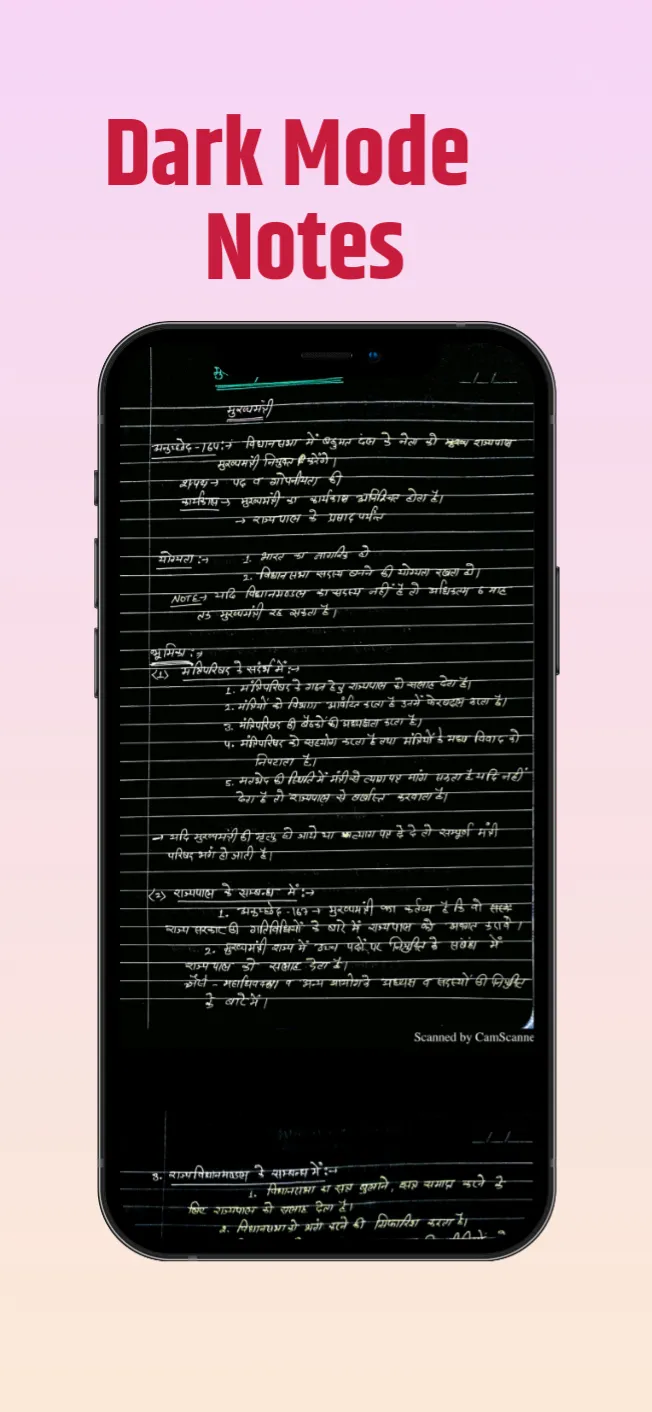 Dark Mode
Notes
मु.
मुख्यमंत्री
अनुच्छेद-164:→ विधानसभा में बहुमत दल के नेता को राज्यपाल
मुख्यमंत्री नियुक्त करेंगे।
शपथ→ पद व गोपनीयता की
कार्यकाल→ मुख्यमंत्री का कार्यकाल अनिश्चित होता है।
→ राज्यपाल के प्रसाद पर्यन्त
योग्यता:→ 1. भारत का नागरिक हो
2. विधानसभा सदस्य बनने की योग्यता रखता हो।
NOTE→ यदि विधानमण्डल का सदस्य नहीं है तो अधिकतम 6 माह
तक मुख्यमंत्री रह सकता है।
भूमिका:→
(1) मंत्रिपरिषद के संदर्भ में:→
1. मंत्रिपरिषद के गठन हेतु राज्यपाल को सलाह देता है।
2. मंत्रियों को विभाग आवंटित करता है उनमें फेरबदल करता है।
3. मंत्रिपरिषद की बैठकों की अध्यक्षता करता है।
4. मंत्रिपरिषद को सहयोग करता है तथा मंत्रियों के मध्य विवाद को
निपटाता है।
5. मतभेद की स्थिति में मंत्री से त्याग पत्र मांग सकता है यदि नहीं
देता है तो राज्यपाल से बर्खास्त करवाता है।
→ यदि मुख्यमंत्री की मृत्यु हो जाये या त्याग पत्र दे दे तो सम्पूर्ण मंत्री
परिषद भंग हो जाती है।
(2) राज्यपाल के सम्बन्ध में:→
1. अनुच्छेद-167→ मुख्यमंत्री का कर्तव्य है कि वो
राज्य सरकार की गतिविधियों के बारे में राज्यपाल को अवगत कराये।
2. मुख्यमंत्री राज्य में उच्च पदों पर नियुक्ति के संबंध में
राज्यपाल को सलाह देता है।
जैसे - महाधिवक्ता व अन्य आयोग के अध्यक्ष व सदस्यों की नियुक्ति
के बारे में।
Scanned by CamScanne
3. राज्य विधानमण्डल के सम्बन्ध में:→
1. विधानसभा का सत्र बुलाने, सत्र समाप्त करने के
लिए राज्यपाल को सलाह देता है।
2. विधानसभा को भंग करने की सिफारिश करता है।